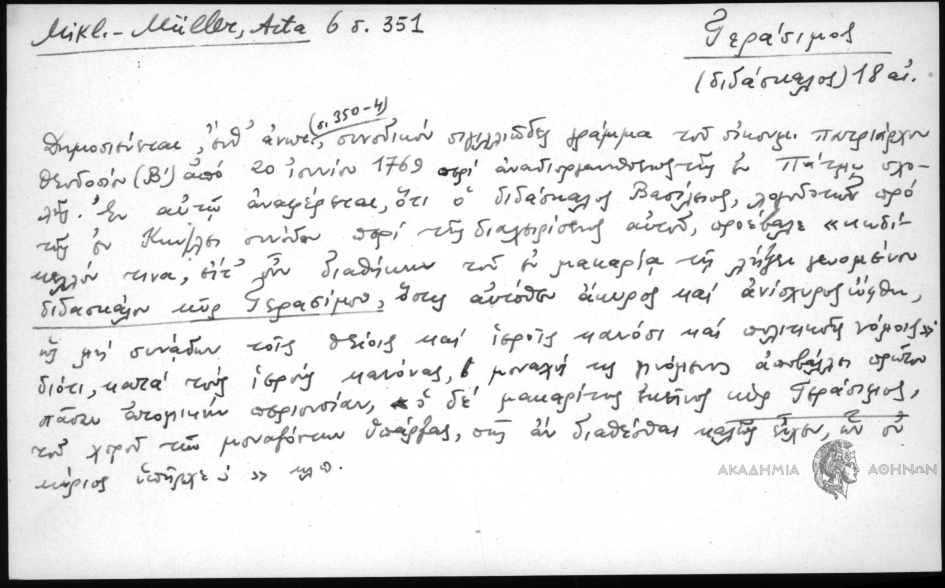 Mikl.-Müller, Acta 6 σ. 351
Γεράσιμος
(διδάσκαλος) 18 αἰ.
(σ. 350-4)
Δημοσιεύεται, ἔνθ' ἀνωτ., συνοδικόν σιγιλλιῶδες γράμμα τοῦ οἰκουμ. πατριάρχου
Θεοδοσίου (Β') ἀπό 20 Ἰουνίου 1769 περί ἀναδιοργανώσεως τῆς ἐν Πάτμῳ σχο-
λῆς. Ἐν αὐτῷ ἀναφέρεται, ὅτι ὁ διδάσκαλος Βασίλειος, λογοδοτῶν πρό
τῆς ἐν Κων/λει συνόδου περί τῆς διαχειρίσεως αὐτοῦ, προέβαλε «κωδί-
κελλόν τινα, εἴτ' οὖν διαθήκην τοῦ ἐν μακαρίᾳ τῇ λήξει γενομένου
διδασκάλου κύρ Γερασίμου, ὅστις αὐτόθεν ἄκυρος καί ἀνίσχυρος ὤφθη,
ὡς μή συνᾴδων τοῖς θείοις καί ἱεροῖς κανόσι καί πολιτικοῖς νόμοις»
διότι, κατά τούς ἱερούς κανόνας, ὁ μοναχός τις γινόμενος ἀποβάλλει πρῶτον
πᾶσαν ἀτομικήν περιουσίαν, ὁ δέ μακαρίτης ἐκεῖνος κύρ Γεράσιμος,
τοῦ χοροῦ τῶν μοναζόντων ὑπάρξας, πῶς ἄν διαθέσθαι καλῶς εἶχεν, ὧν οὐ
κύριος ὑπῆρχε; » κλπ.
ΑΚΑΔΗΜΙΑ ΑΘΗΝΩΝ